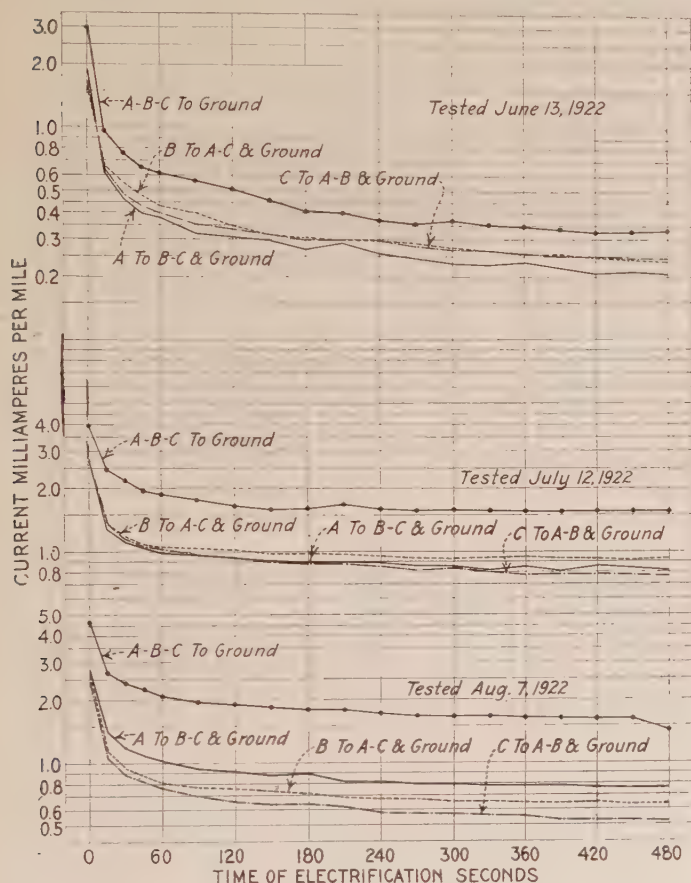 CURRENT MILLIAMPERES PER MILE
3.0
2.0
1.0
0.8
0.6
0.5
0.4
0.3
0.2
A-B-C To Ground
Tested June 13, 1922
B To A-C & Ground
C To A-B & Ground
A To B-C & Ground
4.0
3.0
2.0
1.0
0.8
A-B-C To Ground
Tested July 12, 1922
B To A-C & Ground
A To B-C & Ground
C To A-B & Ground
5.0
4.0
3.0
2.0
1.0
0.8
0.6
0.5
A-B-C To Ground
Tested Aug. 7, 1922
A To B-C & Ground
B To A-C & Ground
C To A-B & Ground
0 60 120 180 240 300 360 420 480
TIME OF ELECTRIFICATION SECONDS